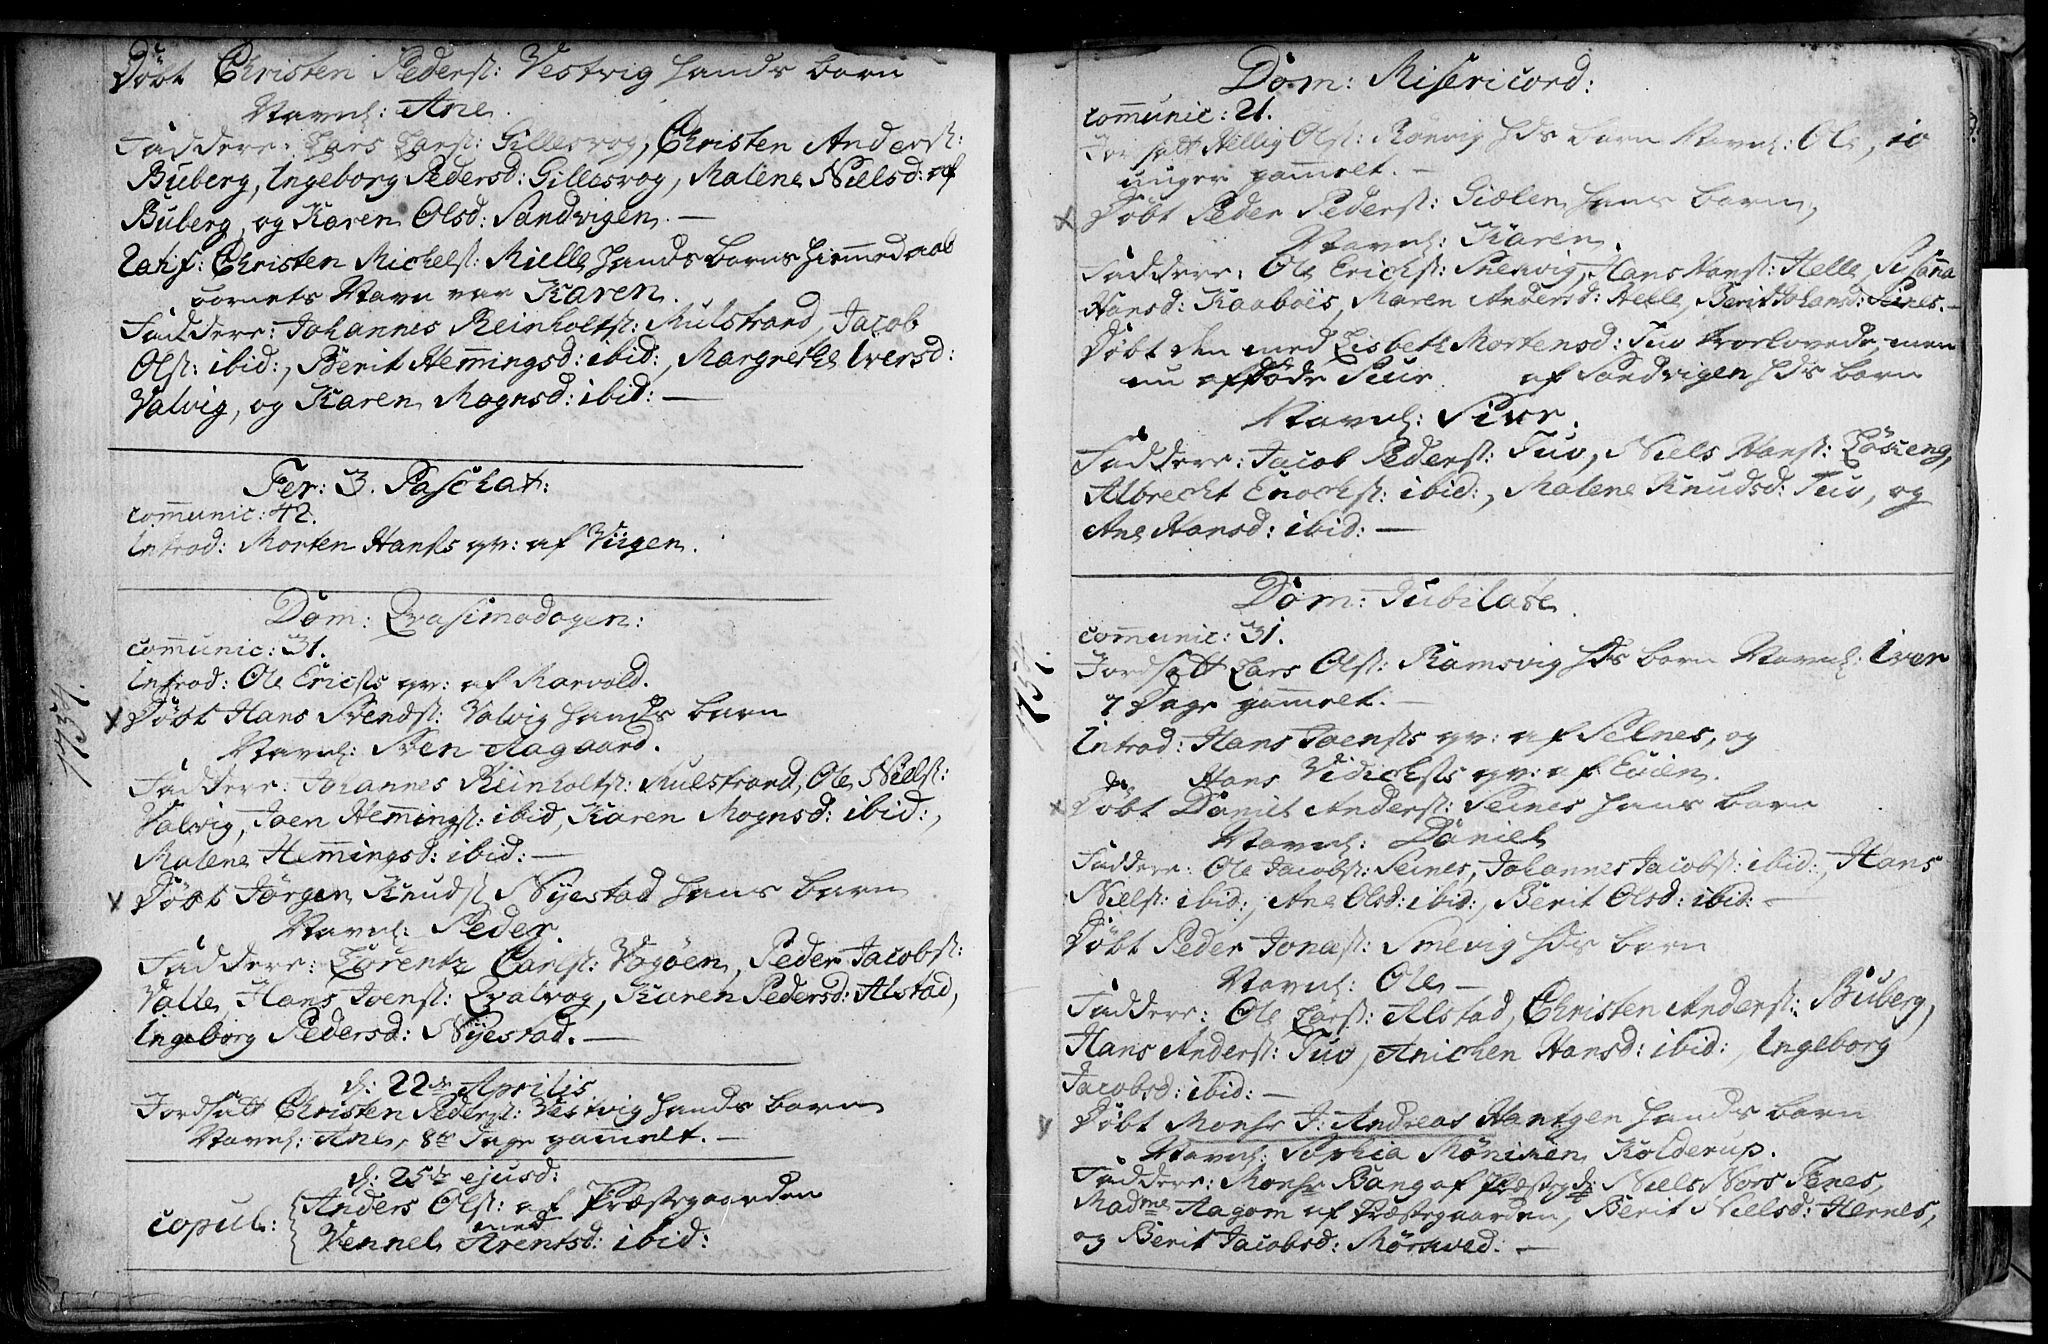 Döbt Christen Peders: Vestvig hands barn
Navnl: Ane.
Faddere: Lars Lars: Gillesvog, Christen Anders:
Buberg, Ingeborg Pedersd: Gillesvog, Malene Nielsd: af
Buberg, og Karen Olsd: Sandvigen. —
Ratif: Christen Michels: Mielle hands barns hiemmedaab
barnets Navn var Karen.
Faddere: Johannes Reinholts: Mulstrand, Jacob
Ols: ibid:, Berit Hemmingsd: ibid:, Margrethe Iversd:
Valvig, og Karen Mognsd: ibid: —
Fer: 3. Paschat:
communic: 42.
Introd: Morten Hans's qv: af Viigen.
Dom: Qvasimodogen:
communic: 31.
Introd: Ole Erics's qv: af Marvold.
Döbt Hans Svends: Valvig hands barn
Navnl: Sven Aagaard.
Faddere: Johannes Reinholts: Mulstrand, Ole Niels:
Valvig, Joen Hemmings: ibid, Karen Mognsd: ibid:,
Malene Hemmingsd: ibid: —
Döbt Jörgen Knuds: Nyestad hans barn
Navnl: Peder.
Faddere: Lorentz Carls: Vogöen, Peder Jacobs:
Valle, Hans Joens: Qvalvog, Karen Pedersd: Alstad,
Ingeborg Pedersd: Nyestad. —
d: 22de Aprilis
Jordsatt Christen Peders: Vestvig hands barn
Navnl: Ane, 8te Dage gammelt. —
d: 25de ejusd:
copul: Anders Ols: af Præstegaarden
med
Vennel Arentsd: ibid:
1734.
Dom: Misericord:
communic: 21.
Jordsatt Hellig Ols: Rönvig hds barn Navnl: Ole, 10
uger gammelt. —
Döbt Peder Peders: Giælen hans barn,
Navnl: Karen.
Faddere: Ole Ericks: Snevig, Hans Hans: Helle, Susanna
Hansd: Kaaboes, Maren Andersd: Helle, Berit Johansd: Seines. —
Döbt den med Lisbeth Mortensd: Tuv trorlovede, men
nu afdöde Siur af Sandvigen hds barn
Navnl: Siur.
Faddere: Jacob Peders: Tuv, Niels Hans: Löseng,
Albrecht Enochs: ibid:, Malene Knudsd: Tuv, og
Ane Hansd: ibid: —
Dom: Jubilate.
communic: 31.
Jordsatt Lars Ols: Ramsvig hds barn Navnl: Iver
7 Dage gammelt. —
Introd: Hans Joens's qv: af Seines, og
Hans Didichs's qv: af Evien.
Döbt Daniel Anders: Seines hans barn
Navnl: Daniel
Faddere: Ole Jacobs: Seines, Johannes Jacobs: ibid:, Hans
Niels: ibid:, Ane Olsd: ibid:, Berit Olsd: ibid: —
Döbt Peder Jonæs: Snevig hds barn
Navnl: Ole —
Faddere: Ole Lars: Alstad, Christen Anders: Buberg,
Hans Anders: Tuv, Anichen Hansd: ibid:, Ingeborg
Jacobsd: ibid: —
Döbt Monsr J: Andreas Hantgen hands barn
Navnl: Sophia Mönichen Kolderup.
Faddere: Monsr Bang af Præstegd: Niels Nors Fenes,
Madme Aagom af Præstegaarden, Berit Nielsd: Hernes,
og Berit Jacobsd: Mörkved. —